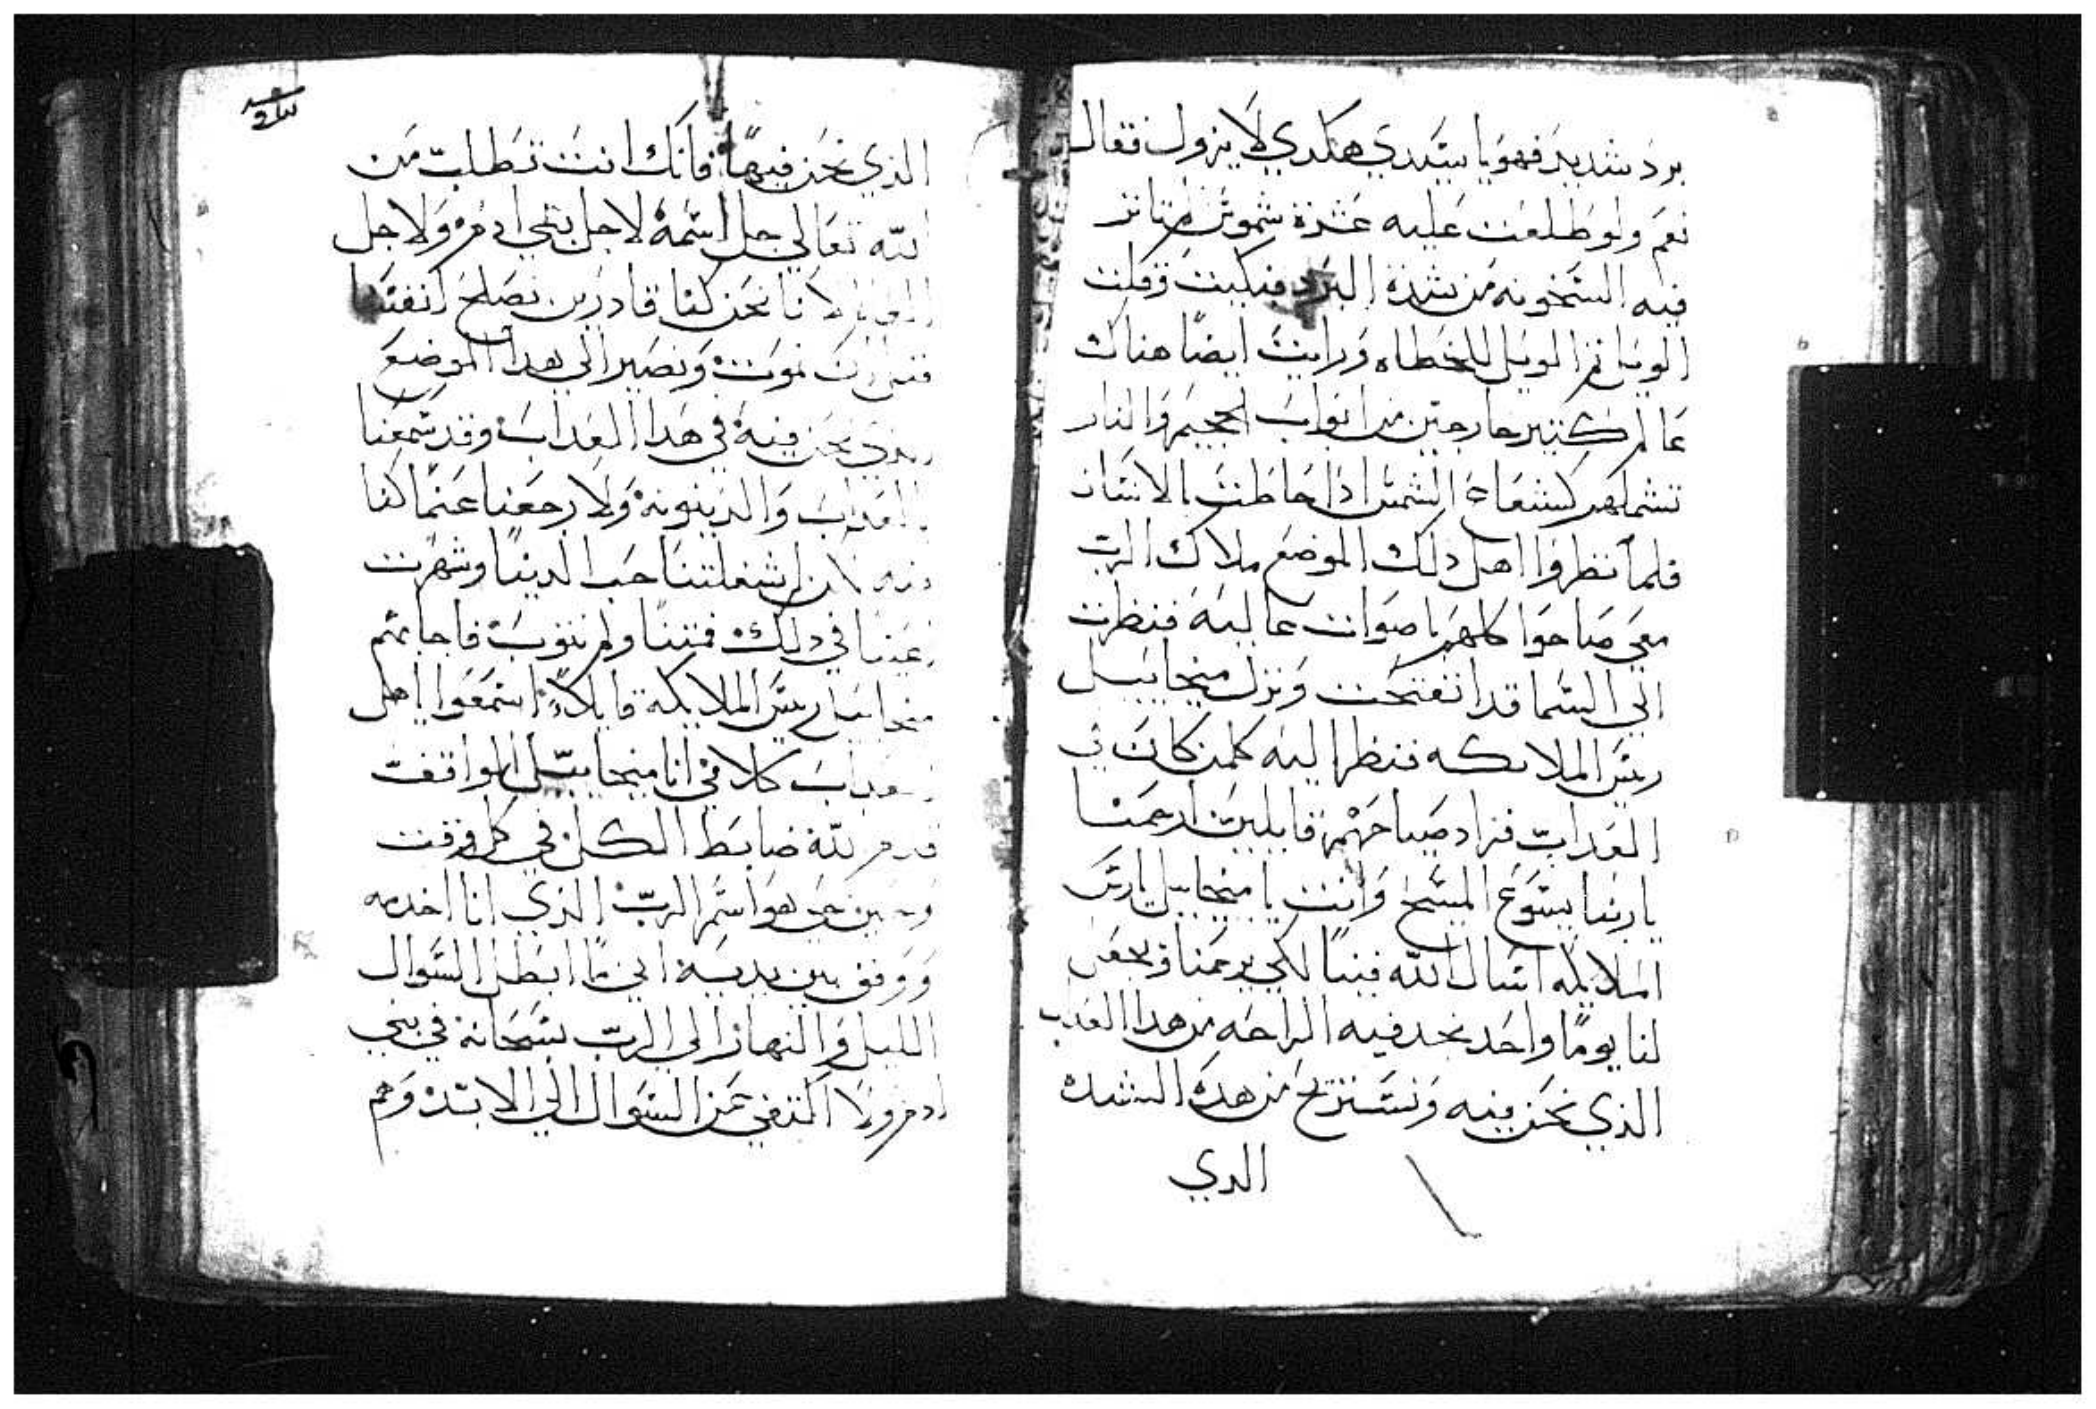 برد شديد فهو يا سيدي هكدي لا يزول فقال
نعم ولو طلعت عليه عشرة شموس
فيه السخونه من شدة البرد فبكيت وقلت
الويل ثم الويل للخطاه ورايت ايضا هناك
عالم كتير خارجين من ابواب الجحيم والنار
تشملهم كشعاع الشمس ادا احاطت بالانسان
فلما نظروا اهل دلك الموضع ملاك الرب
معي صاحوا كلهم باصوات عاليه فنظرت
الي السما قد انفتحت ونزل ميخاييل
ريس الملايكه فنظر اليه كلمن كان في
العداب فزاد صياحهم قايلين ارحمنا
يا ربنا يسوع المسيح وانت يا ميخاييل يا ريس
الملايكه اسال الله فينا لكي يرحمنا ويجعل
لنا يوما واحد نجد فيه الراحه من هدا العداب
الذي نحن فيه ونستريح من هده الشده
الدي
الذي نحن فيها فانك انت تطلب من
الله تعالي جل اسمه لاجل بني ادم ولاجل
لاننا نحن كنا قادرين نصلح انفسنا
نموت ونصير الي هدا الموضع
الذي نحن فيه في هدا العداب وقد سمعنا
بالعداب والدينونه ولا رجعنا عنما كنا
فيه لان اشغلتنا حب الدنيا وشهرت
في دلك فمتنا ولم نتوب فاجابهم
ميخاييل ريس الملايكه قايلا استمعوا يا اهل
العداب كلامي انا ميخاييل الواقف
قدام الله ضابط الكل في كل وقت
وحين حي هو اسم الرب الذي انا اخدمه
ووقف بين يديه اني ما ابطل السوال
الليل والنهار الي الرب سبحانه في بني
ادم ولا اكتفي عن السوال الي الابد وهم